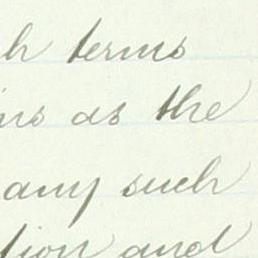 h terms
ns as the
any such
tion and